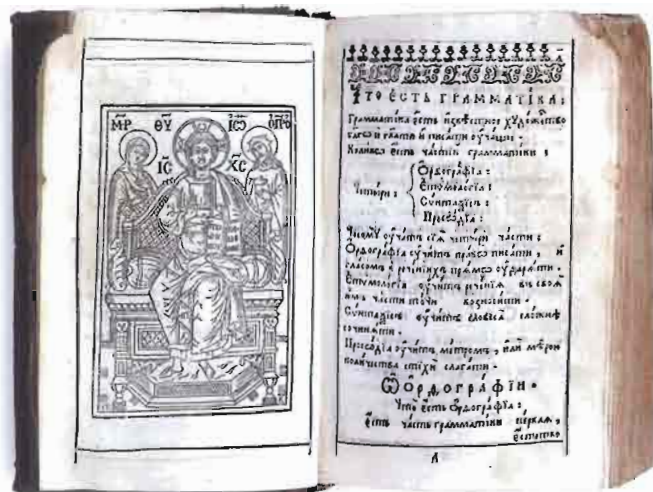 М҃Р Ѳ҃У ІѠ҃ О҃ПРО
І҃С Х҃С
Что̀ є҆́сть грамма́тїка:
Грамма́тіка є҆́сть и҆звѣ́стное худо́жество
бл҃го и҆ гл҃ати и҆ писа́ти оу҆ча́щее.
Коли́кѡ є҆́сть часті́й грамма́тіки:
Ѻ҆рѳогра́фїа:
Четы́ри: Е҆тѷмоло́гїа:
Сѵ́нтаѯїсъ:
Просѡ́дїа:
Чесомꙋ̀ оу҆́чатъ сїѧ̑ четы́ри ча́сти:
Ѻ҆рѳогра́фїа оу҆чи́тъ пра́вѡ писа́ти, и҆
гла́сомъ в рече́нїихъ прѧ́мѡ оу҆дарѧ́ти.
Е҆тѷмоло́гїа оу҆чи́тъ рече́нїѧ въ своѧ̀
и҆мъ ча́сти то́чнѣ возноси́ти.
Сѵ́нтаѯїсъ оу҆чи́тъ словеса̀ сло́жнѣ
сочинѧ́ти.
Просѡ́дїа оу҆чи́тъ ме́тромъ, и҆лѝ мѣ́рою
коли́чества стїхѝ слага́ти.
Ѿ Ѻ҆рѳогра́фїи.
Что̀ є҆́сть Ѻ҆рѳогра́фїа:
є҆́сть ча́сть грамма́тіки пе́рваѧ,
є҆стество